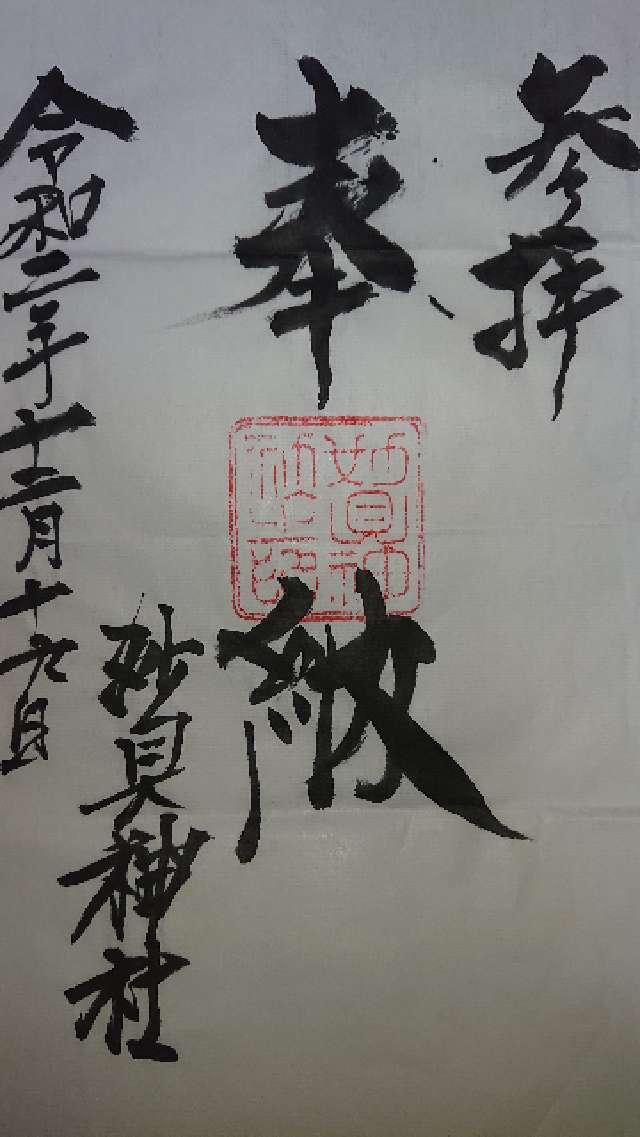 参拝
奉納
妙見神
社之印
妙見神社
令和二年十二月十九日